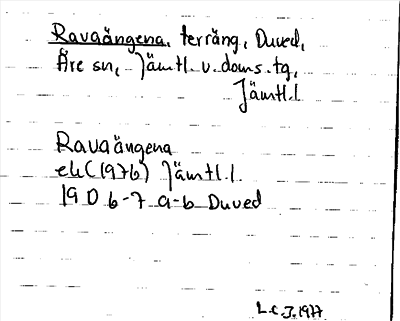 Ravaängena, terräng, Duved,
Åre sn, Jämtl. v. doms. tg,
Jämtl. l
Ravaängena
ek (1976) Jämtl. l.
19 D 6-7 a-b Duved
L.C.J. 1977